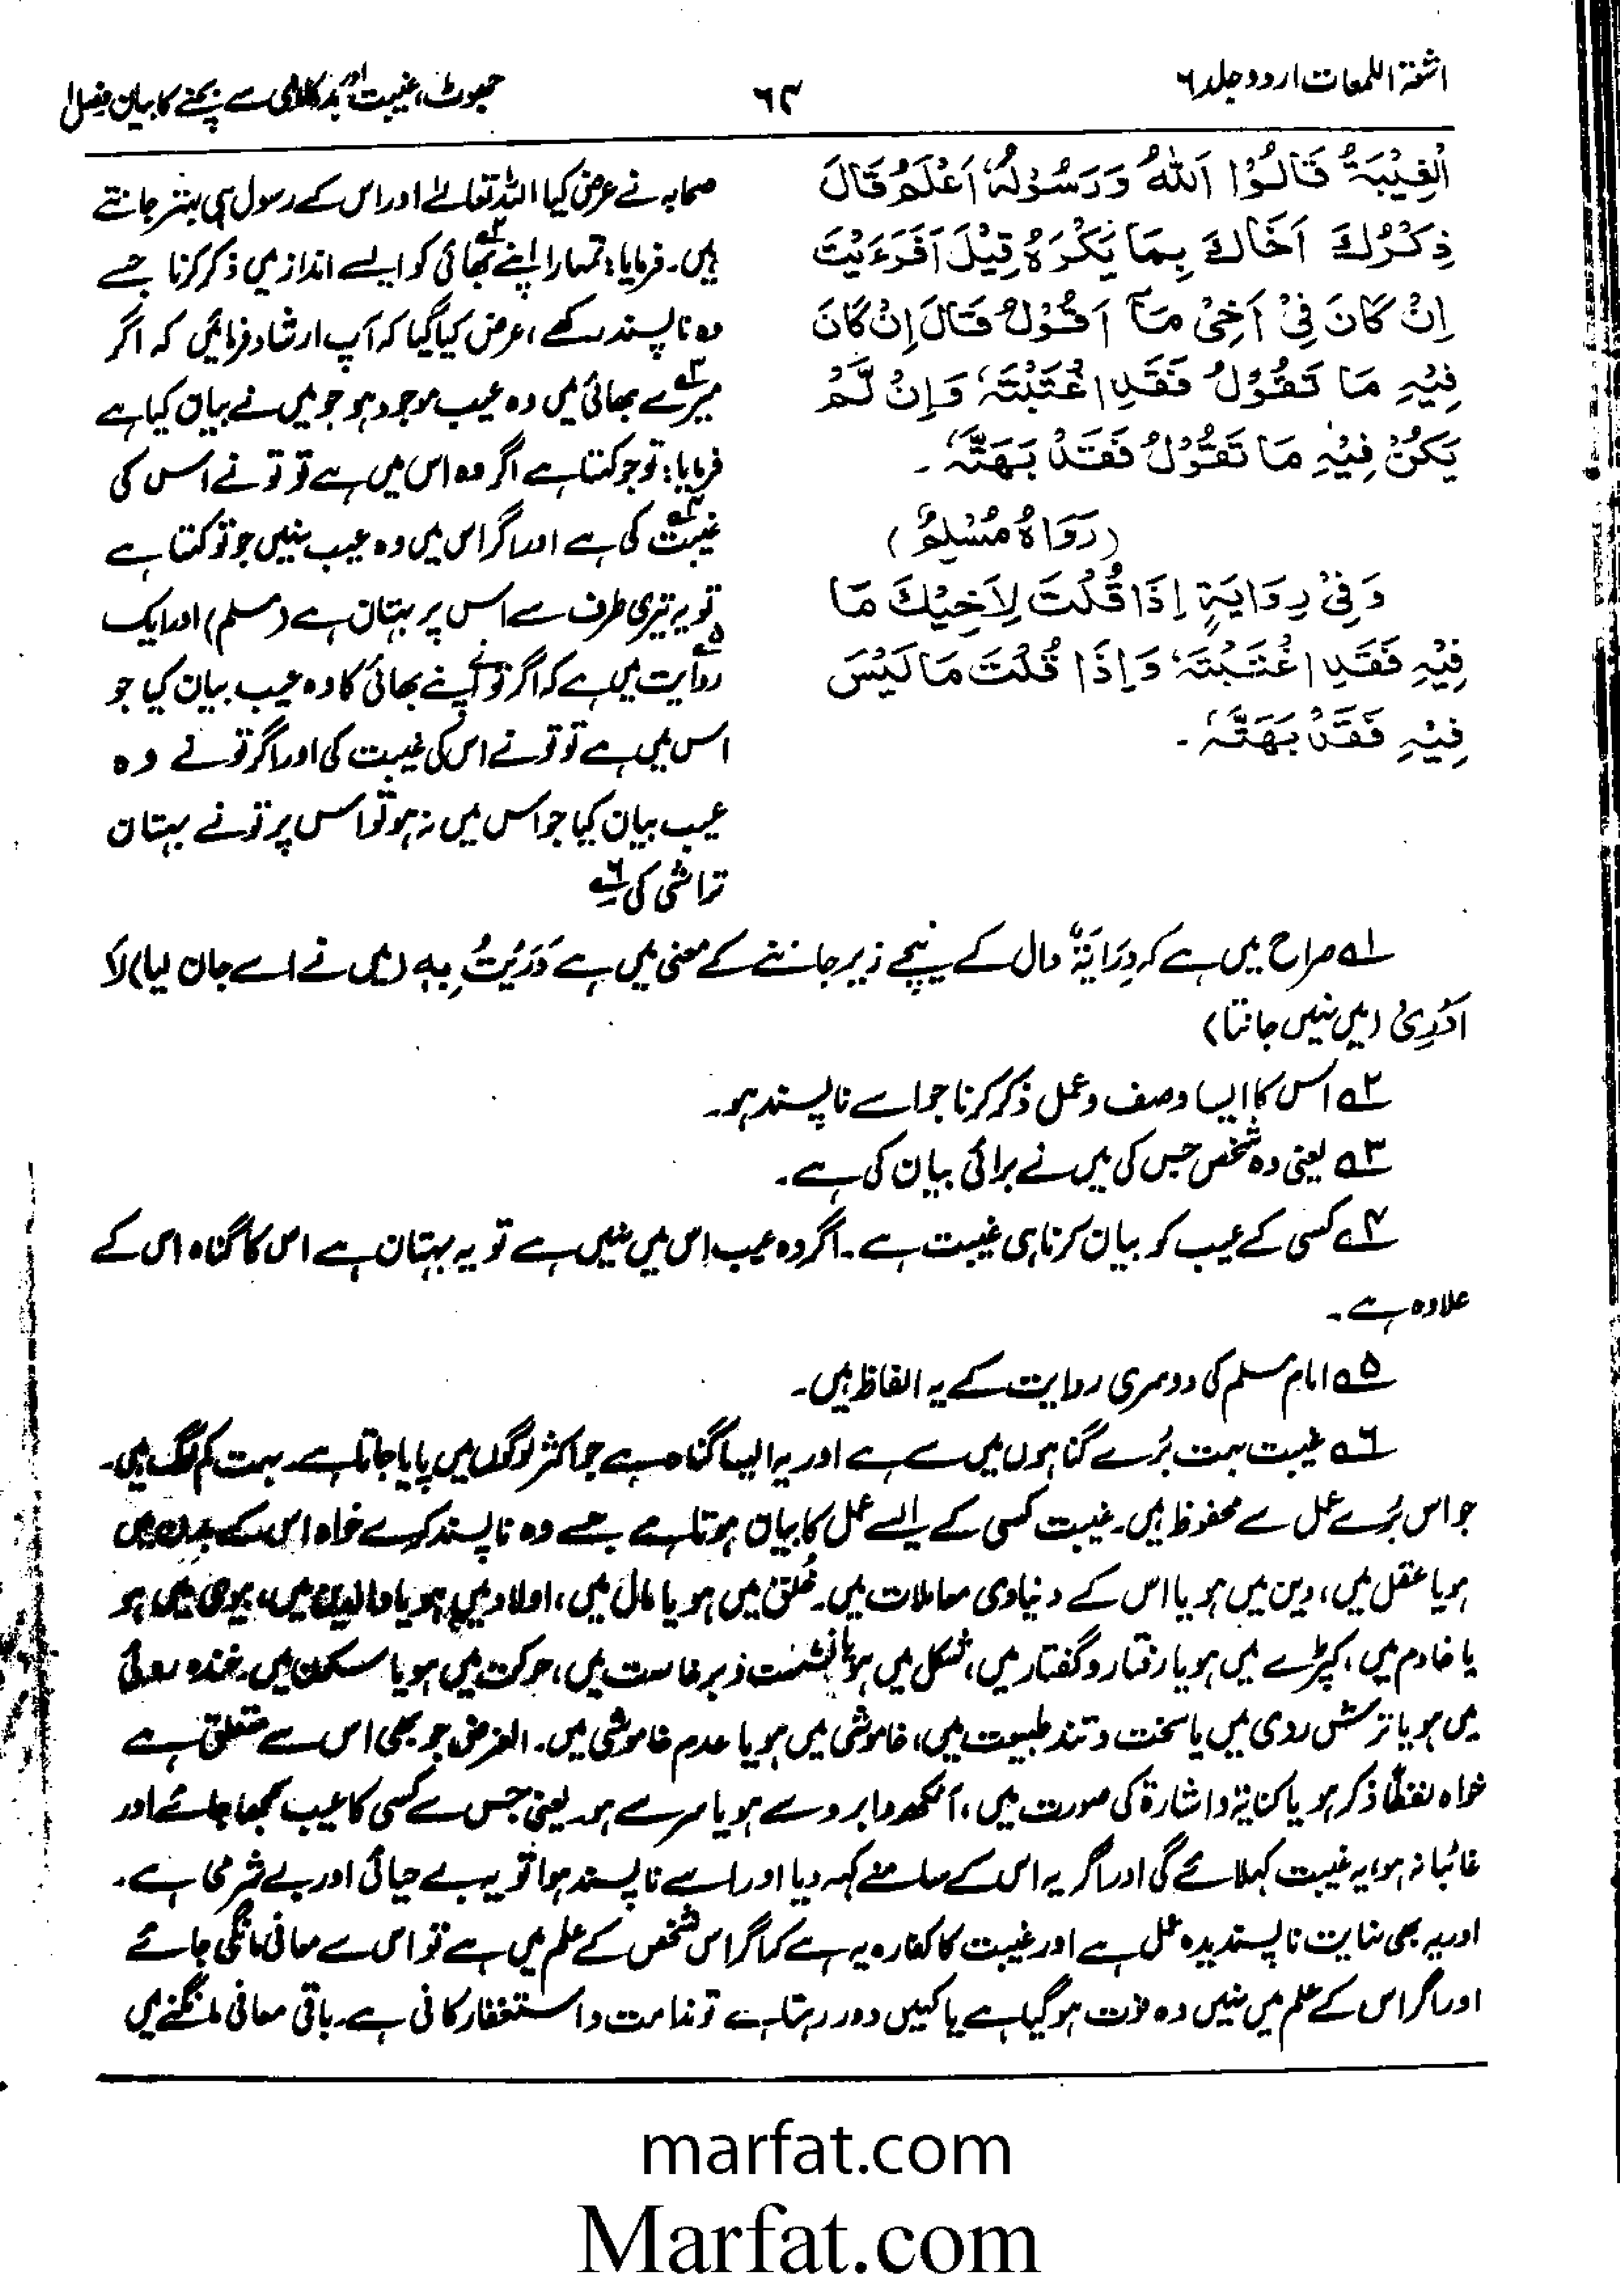 اشعۃ اللمعات اردو جلد ۶
۶۴
جھوٹ، غیبت اور بدکلامی سے بچنے کا بیان فصل ۱
الْغِیْبَۃُ قَالُوْا اَللہُ وَرَسُوْلُہٗ اَعْلَمُ قَالَ
ذِکْرُكَ اَخَاكَ بِمَا یَکْرَہُ قِیْلَ اَفَرَءَیْتَ
اِنْ کَانَ فِیْ اَخِیْ مَآ اَقُوْلُ قَالَ اِنْ کَانَ
فِیْہِ مَا تَقُوْلُ فَقَدِ اغْتَبْتَہٗ وَاِنْ لَّمْ
یَکُنْ فِیْہِ مَا تَقُوْلُ فَقَدْ بَھَتَّہٗ۔
(رَوَاہُ مُسْلِمٌ)
وَفِیْ رِوَایَۃٍ اِذَا قُلْتَ لِاَخِیْكَ مَا
فِیْہِ فَقَدِ اغْتَبْتَہٗ وَاِذَا قُلْتَ مَا لَیْسَ
فِیْہِ فَقَدْ بَھَتَّہٗ۔
صحابہ نے عرض کیا اللہ تعالےٰ اور اس کے رسول ہی بہتر جانتے
ہیں۔ فرمایا: تمہارا اپنے بھائی ۲ کو ایسے انداز میں ذکر کرنا جسے
وہ ناپسند رکھے، عرض کیا گیا کہ آپ ارشاد فرمائیں کہ اگر
میرے ۳ بھائی میں وہ عیب موجود ہو جو میں نے بیان کیا ہے
فرمایا: تو جو کہتا ہے اگر وہ اس میں ہے تو تو نے اس کی
غیبت ۴ کی ہے اور اگر اس میں وہ عیب نہیں جو تو کہتا ہے
تو یہ تیری طرف سے اس پر بہتان ہے (مسلم) اور ایک
روایت ۵ میں ہے کہ اگر تو نے اپنے بھائی کا وہ عیب بیان کیا جو
اس میں ہے تو تو نے اس کی غیبت کی اور اگر تو نے وہ
عیب بیان کیا جو اس میں نہ ہو تو اس پر تو نے بہتان
تراشی کی ۶
۱ صراح میں ہے کہ دِرَایَۃٌ دال کے نیچے زیر جاننے کے معنی میں ہے دَرَیْتُ بِہٖ (میں نے اسے جان لیا) لَا
اَدْرِیْ (میں نہیں جانتا)
۲ اس کا ایسا وصف و عمل ذکر کرنا جو اسے ناپسند ہو۔
۳ یعنی وہ شخص جس کی میں نے برائی بیان کی ہے۔
۴ کسی کے عیب کو بیان کرنا ہی غیبت ہے۔ اگر وہ عیب اس میں نہیں ہے تو یہ بہتان ہے اس کا گناہ اس کے
علاوہ ہے۔
۵ امام مسلم کی دوسری روایت کے یہ الفاظ ہیں۔
۶ غیبت بہت بُرے گناہوں میں سے ہے اور یہ ایسا گناہ ہے جو اکثر لوگوں میں پایا جاتا ہے۔ بہت کم لوگ ہیں۔
جو اس بُرے عمل سے محفوظ ہیں۔ غیبت کسی کے ایسے عمل کا بیان ہوتا ہے جسے وہ ناپسند کرے خواہ اس کے بدن میں
ہو یا عقل میں، دین میں ہو یا اس کے دنیاوی معاملات میں۔ خُلق میں ہو یا مال میں، اولاد میں ہو یا والدین میں، بیوی میں ہو
یا خادم میں، کپڑے میں ہو یا رفتار و گفتار میں، شکل میں ہو یا نشست و برخاست میں، حرکت میں ہو یا سکون میں۔ خندہ روئی
میں ہو یا ترش روی میں یا سخت و تند طبیعت میں، خاموشی میں ہو یا عدم خاموشی میں۔ الغرض جو بھی اس سے متعلق ہے
خواہ لفظاً ذکر ہو یا کنایۃً و اشارۃ کی صورت میں، آنکھ و ابرو سے ہو یا سر سے ہو۔ یعنی جس سے کسی کا عیب سمجھا جائے اور
غائبانہ ہو، یہ غیبت کہلائے گی اور اگر یہ اس کے سامنے کہہ دیا اور اسے ناپسند ہوا تو یہ بے حیائی اور بے شرمی ہے۔
اور یہ بھی نہایت ناپسندیدہ عمل ہے اور غیبت کا کفارہ یہ ہے کہ اگر اس شخص کے علم میں ہے تو اس سے معافی مانگی جائے
اور اگر اس کے علم میں نہیں وہ فوت ہو گیا ہے یا کہیں دور رہتا ہے تو ندامت و استغفار کافی ہے۔ باقی معافی مانگنے میں
marfat.com
Marfat.com